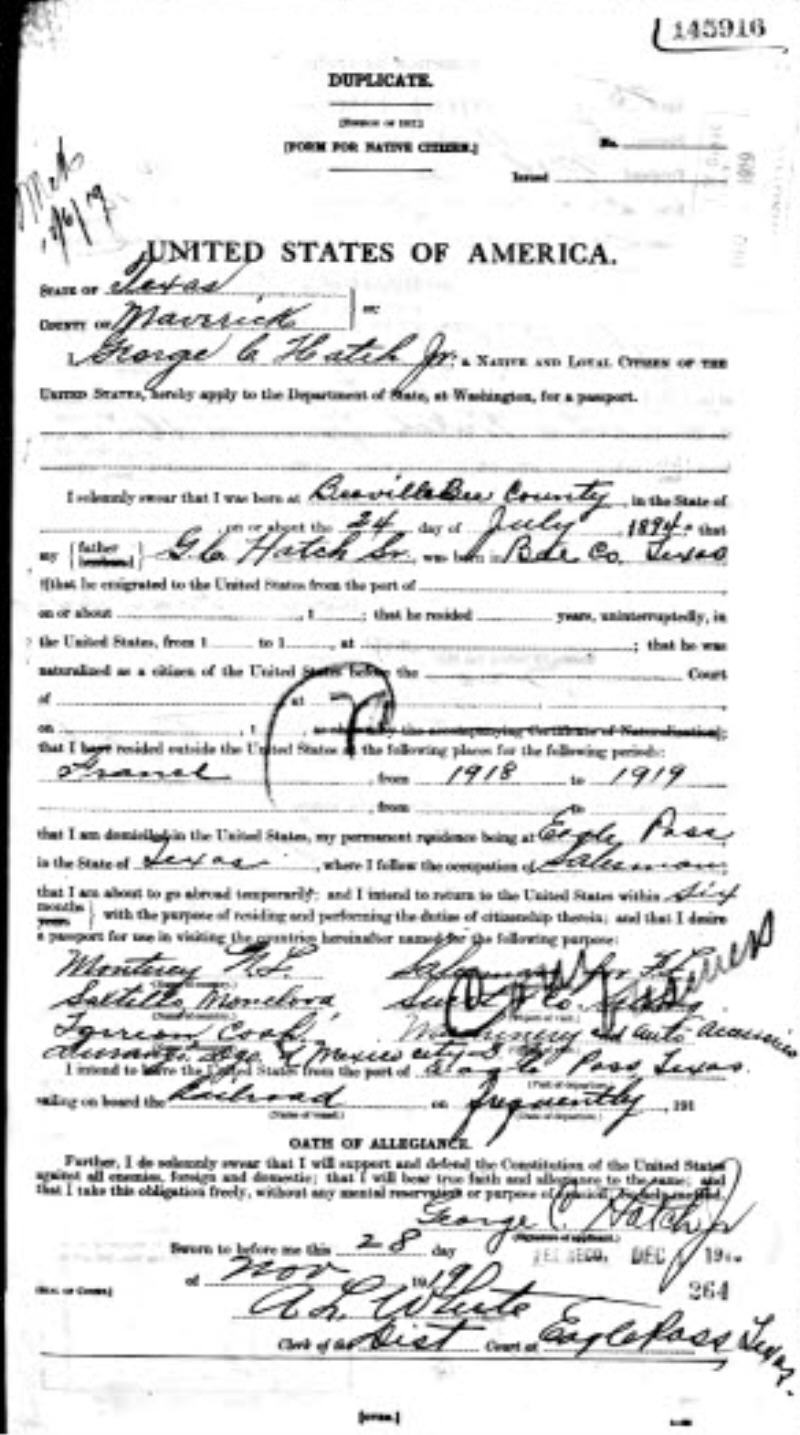 145916
DUPLICATE.
[FORM FOR NATIVE CITIZEN.]
No.
Issued
UNITED STATES OF AMERICA.
STATE OF Texas
COUNTY OF Maverick
I, George C Hatch Jr., a NATIVE AND LOYAL CITIZEN OF THE
UNITED STATES, hereby apply to the Department of State, at Washington, for a passport.
I solemnly swear that I was born at Beeville Bee County, in the State of
, on or about the 24 day of July 1894, that
my {father husband} G.C. Hatch Sr. was born in Bee Co. Texas
that he emigrated to the United States from the port of
on or about , 1 ; that he resided years, uninterruptedly, in
the United States, from 1 to 1 , at ; that he was
naturalized as a citizen of the United States before the Court
of at
on , 1 , as shown by the accompanying Certificate of Naturalization];
that I have resided outside the United States at the following places for the following periods:
France , from 1918 to 1919
, from to
that I am domiciled in the United States, my permanent residence being at Eagle Pass
in the State of Texas , where I follow the occupation of Salesman;
that I am about to go abroad temporarily; and I intend to return to the United States within six
{months years} with the purpose of residing and performing the duties of citizenship therein; and that I desire
a passport for use in visiting the countries hereinafter named for the following purpose:
Monterey N.L.
Saltillo, Monclova, & Co.
Torreon Coah. Machinery and auto accessories
Durango Dgo. & Mexico city
I intend to leave the United States from the port of Eagle Pass, Texas.
sailing on board the Railroad on frequently , 191
OATH OF ALLEGIANCE.
Further, I do solemnly swear that I will support and defend the Constitution of the United States
against all enemies, foreign and domestic; that I will bear true faith and allegiance to the same; and
that I take this obligation freely, without any mental reservation or purpose of evasion:
George C. Hatch Jr
(Signature of applicant.)
Sworn to before me this 28 day
DEC
of Nov 1919
264
[SEAL OF COURT.]
A L White
Clerk of the Dist Court at Eagle Pass Texas.
[OVER.]